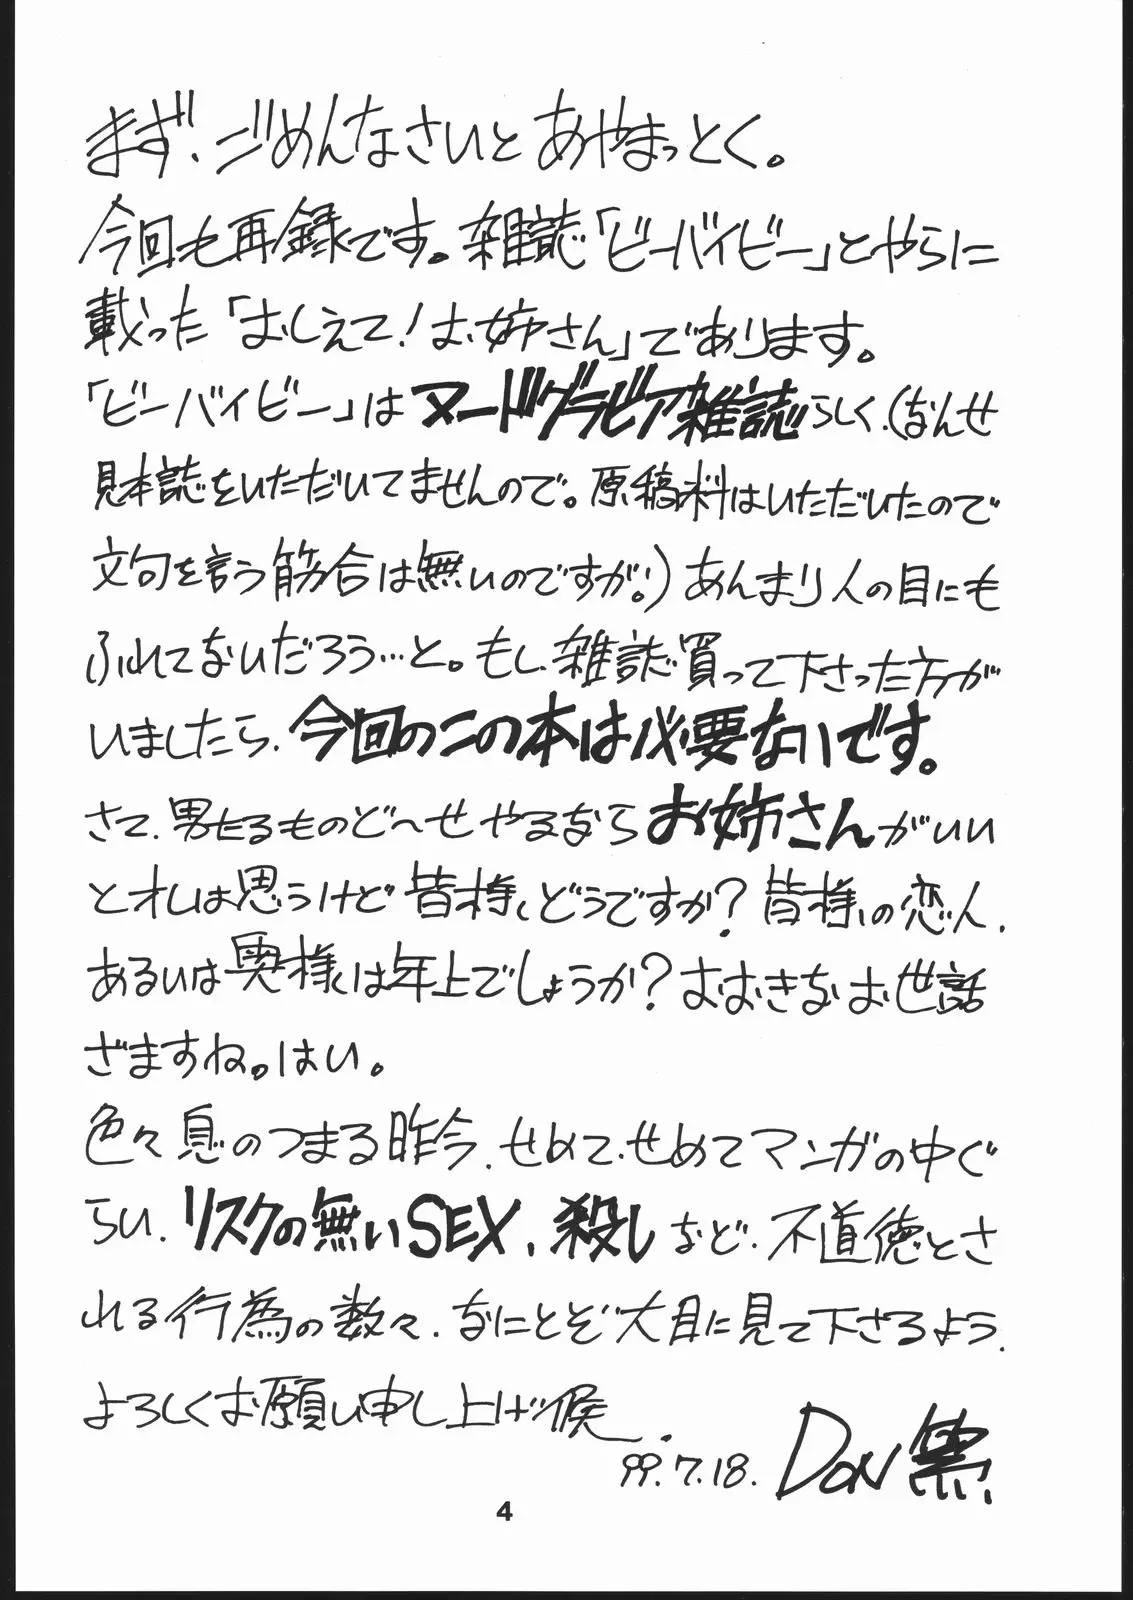 まず、ごめんなさいと あやまっとく。
今回も再録です。雑誌「ビーバイビー」とやらに
載った「おしえて!お姉さん」であります。
「ビーバイビー」は ヌードグラビア雑誌らしく、(なんせ
見本誌をいただいてませんので。原稿料はいただいたので
文句を言う筋合は無いのですが。)あんまり人の目にも
ふれてないだろう…と。もし、雑誌買って下さった方が
いましたら、今回のこの本は必要ないです。
さて、男たるものど〜せやるなら お姉さんがいい
とオレは思うけど 皆様、どうですか?皆様の恋人、
あるいは奥様は年上でしょうか?おおきなお世話
ざますね。はい。
色々息のつまる昨今、せめて、せめてマンガの中ぐ
らい、リスクの無いSEX、殺しなど、不道徳とさ
れる行為の数々、なにとぞ大目に見て下さるよう、
よろしくお願い申し上げ候。
99.7.18. DON繁
4